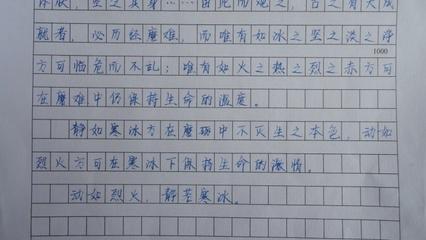 体肤，空乏其身……由此而观之，古之有大成
就者，必历经磨难，而唯有如冰之坚之洁之净
1000
方可临危而不乱；唯有如火之热之烈之赤方可
在磨难中仍保持生命的温度。
静如寒冰方在磨砺中不灭生之本色，动如
烈火方可在寒冰下保持生命的激情。
动如烈火，静若寒冰。